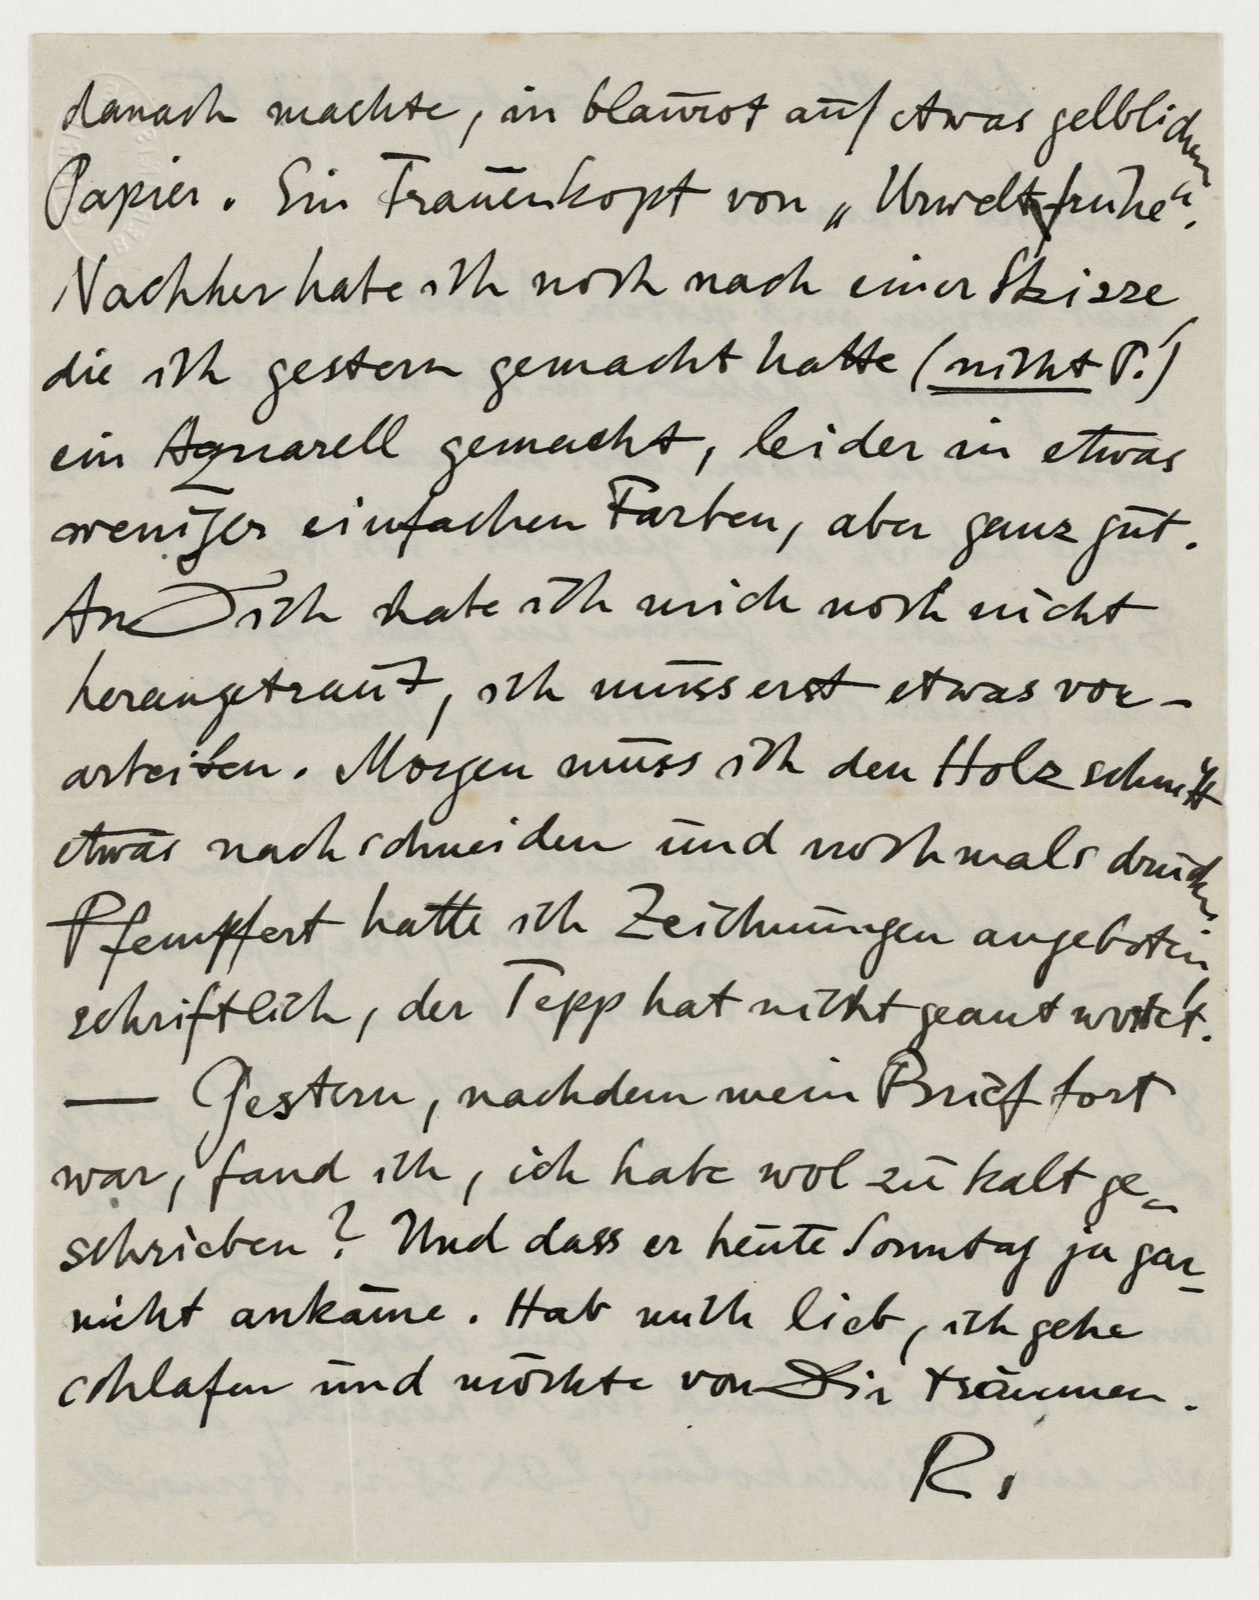 danach machte, in blaurot auf etwas gelblichem
Papier. Ein Frauenkopf von „Urweltfrühe“.
Nachher habe ich noch nach einer Skizze,
die ich gestern gemacht hatte (nicht P.!)
ein Aquarell gemacht, leider in etwas
weniger einfachen Farben, aber ganz gut.
An Dich habe ich mich noch nicht
herangetraut, ich muss erst etwas vor-
arbeiten. Morgen muss ich den Holzschnitt
etwas nachschneiden und nochmals drucken
Pfempfert hatte ich Zeichnungen angeboten,
schriftlich, der Tepp hat nicht geantwortet.
— Gestern, nachdem mein Brief fort
war, fand ich, ich habe wol zu kalt ge-
schrieben? Und dass er heute Sonntag ja gar-
nicht ankäme. Hab mich lieb, ich gehe
schlafen und möchte von Dir träumen.
R.